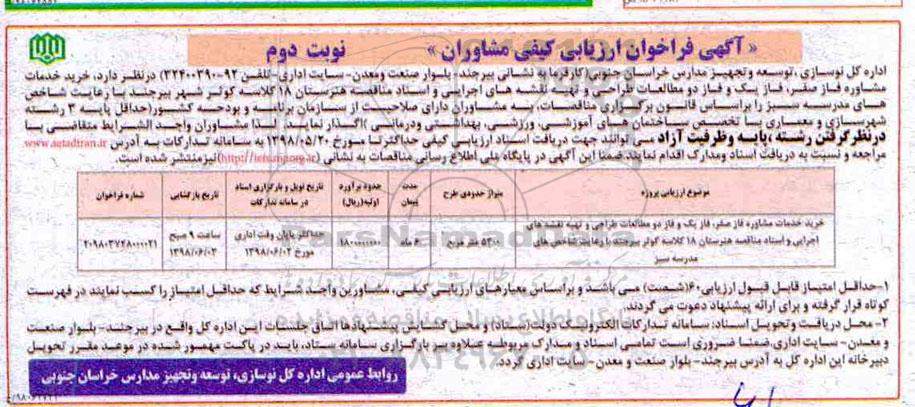 « آگهی فراخوان ارزیابی کیفی مشاوران » نوبت دوم
اداره کل نوسازی ،توسعه وتجهیز مدارس خراسان جنوبی(کارفرما به نشانی بیرجند- بلوار صنعت ومعدن- سایت اداری-تلفن ۹۲-۳۲۴۰۰۳۹۰) درنظر دارد، خرید خدمات
مشاوره فاز صفر، فاز یک و فاز دو مطالعات طراحی و تهیه نقشه های اجرایی و اسناد مناقصه هنرستان ۱۸ کلاسه کوثر شهر بیرجند با رعایت شاخص
های مدرسه سبز را براساس قانون برگزاری مناقصات، به مشاوران دارای صلاحیت از سازمان برنامه و بودجه کشور(حداقل پایه ۳ رشته:
شهرسازی و معماری با تخصص ساختمان های آموزشی، ورزشی، بهداشتی ودرمانی )واگذار نماید. لذا مشاوران واجد الشرایط متقاضی با
درنظرگرفتن رشته ،پایه وظرفیت آزاد می توانند جهت دریافت اسناد ارزیابی کیفی حداکثرتا مورخ ۱۳۹۸/۰۵/۳۰ به سامانه تدارکات به آدرس www.setadiran.ir
مراجعه و نسبت به دریافت اسناد ومدارک اقدام نمایند.ضمنا این آگهی در پایگاه ملی اطلاع رسانی مناقصات به نشانی (http://iets.mporg.ir)نیزمنتشر شده است.
موضوع ارزیابی پروژه متراژ حدودی طرح مدت پیمان حدود برآورد اولیه(ریال) تاریخ تحویل و بارگزاری اسناد در سامانه تدارکات تاریخ بازگشایی شماره فراخوان
خرید خدمات مشاوره فاز صفر، فاز یک و فاز دو مطالعات طراحی و تهیه نقشه های
اجرایی و اسناد مناقصه هنرستان ۱۸ کلاسه کوثر بیرجند با رعایت شاخص های
مدرسه سبز
۵۳۰۰ متر مربع
۶ ماه
حداکثر پایان وقت اداری
مورخ ۱۳۹۸/۰۶/۰۲
ساعت ۹ صبح
۱۳۹۸/۰۶/۰۳
۱-حداقل امتیاز قابل قبول ارزیابی۶۰(شصت) می باشد و براساس معیارهای ارزیابی کیفی، مشاورین واجد شرایط که حداقل امتیاز را کسب نمایند در فهرست
کوتاه قرار گرفته و برای ارائه پیشنهاد دعوت می گردند.
۲- محل دریافت وتحویل اسناد، سامانه تدارکات الکترونیک دولت(ستاد) و محل گشایش پیشنهادها اتاق جلسات این اداره کل واقع در بیرجند- بلوار صنعت
و معدن- سایت اداری.ضمنا ضروری است تمامی اسناد و مدارک مربوطه علاوه بر بارگزاری سامانه ستاد، باید در پاکت مهمور شده در موعد مقرر تحویل
دبیر خانه این اداره کل به آدرس بیرجند- بلوار صنعت و معدن - سایت اداری گردد.
روابط عمومی اداره کل نوسازی، توسعه وتجهیز مدارس خراسان جنوبی